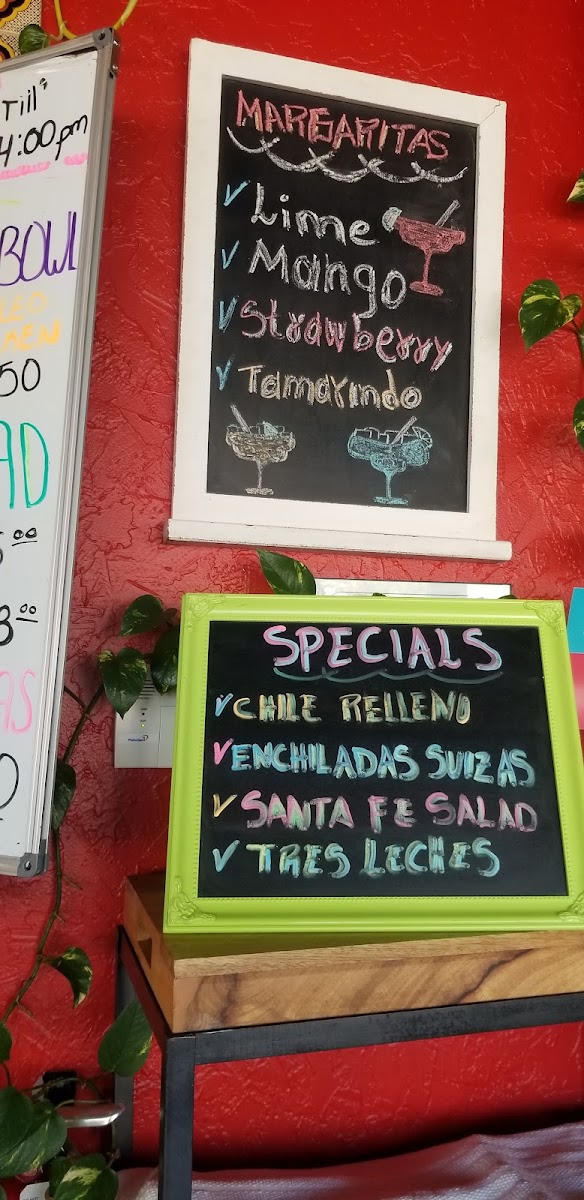 Till
4:00pm
BOWL
50
AD
MARGARITAS
Lime
Mango
Strawberry
Tamarindo
SPECIALS
CHILE RELLENO
ENCHILADAS SUIZAS
SANTA FE SALAD
TRES LECHES